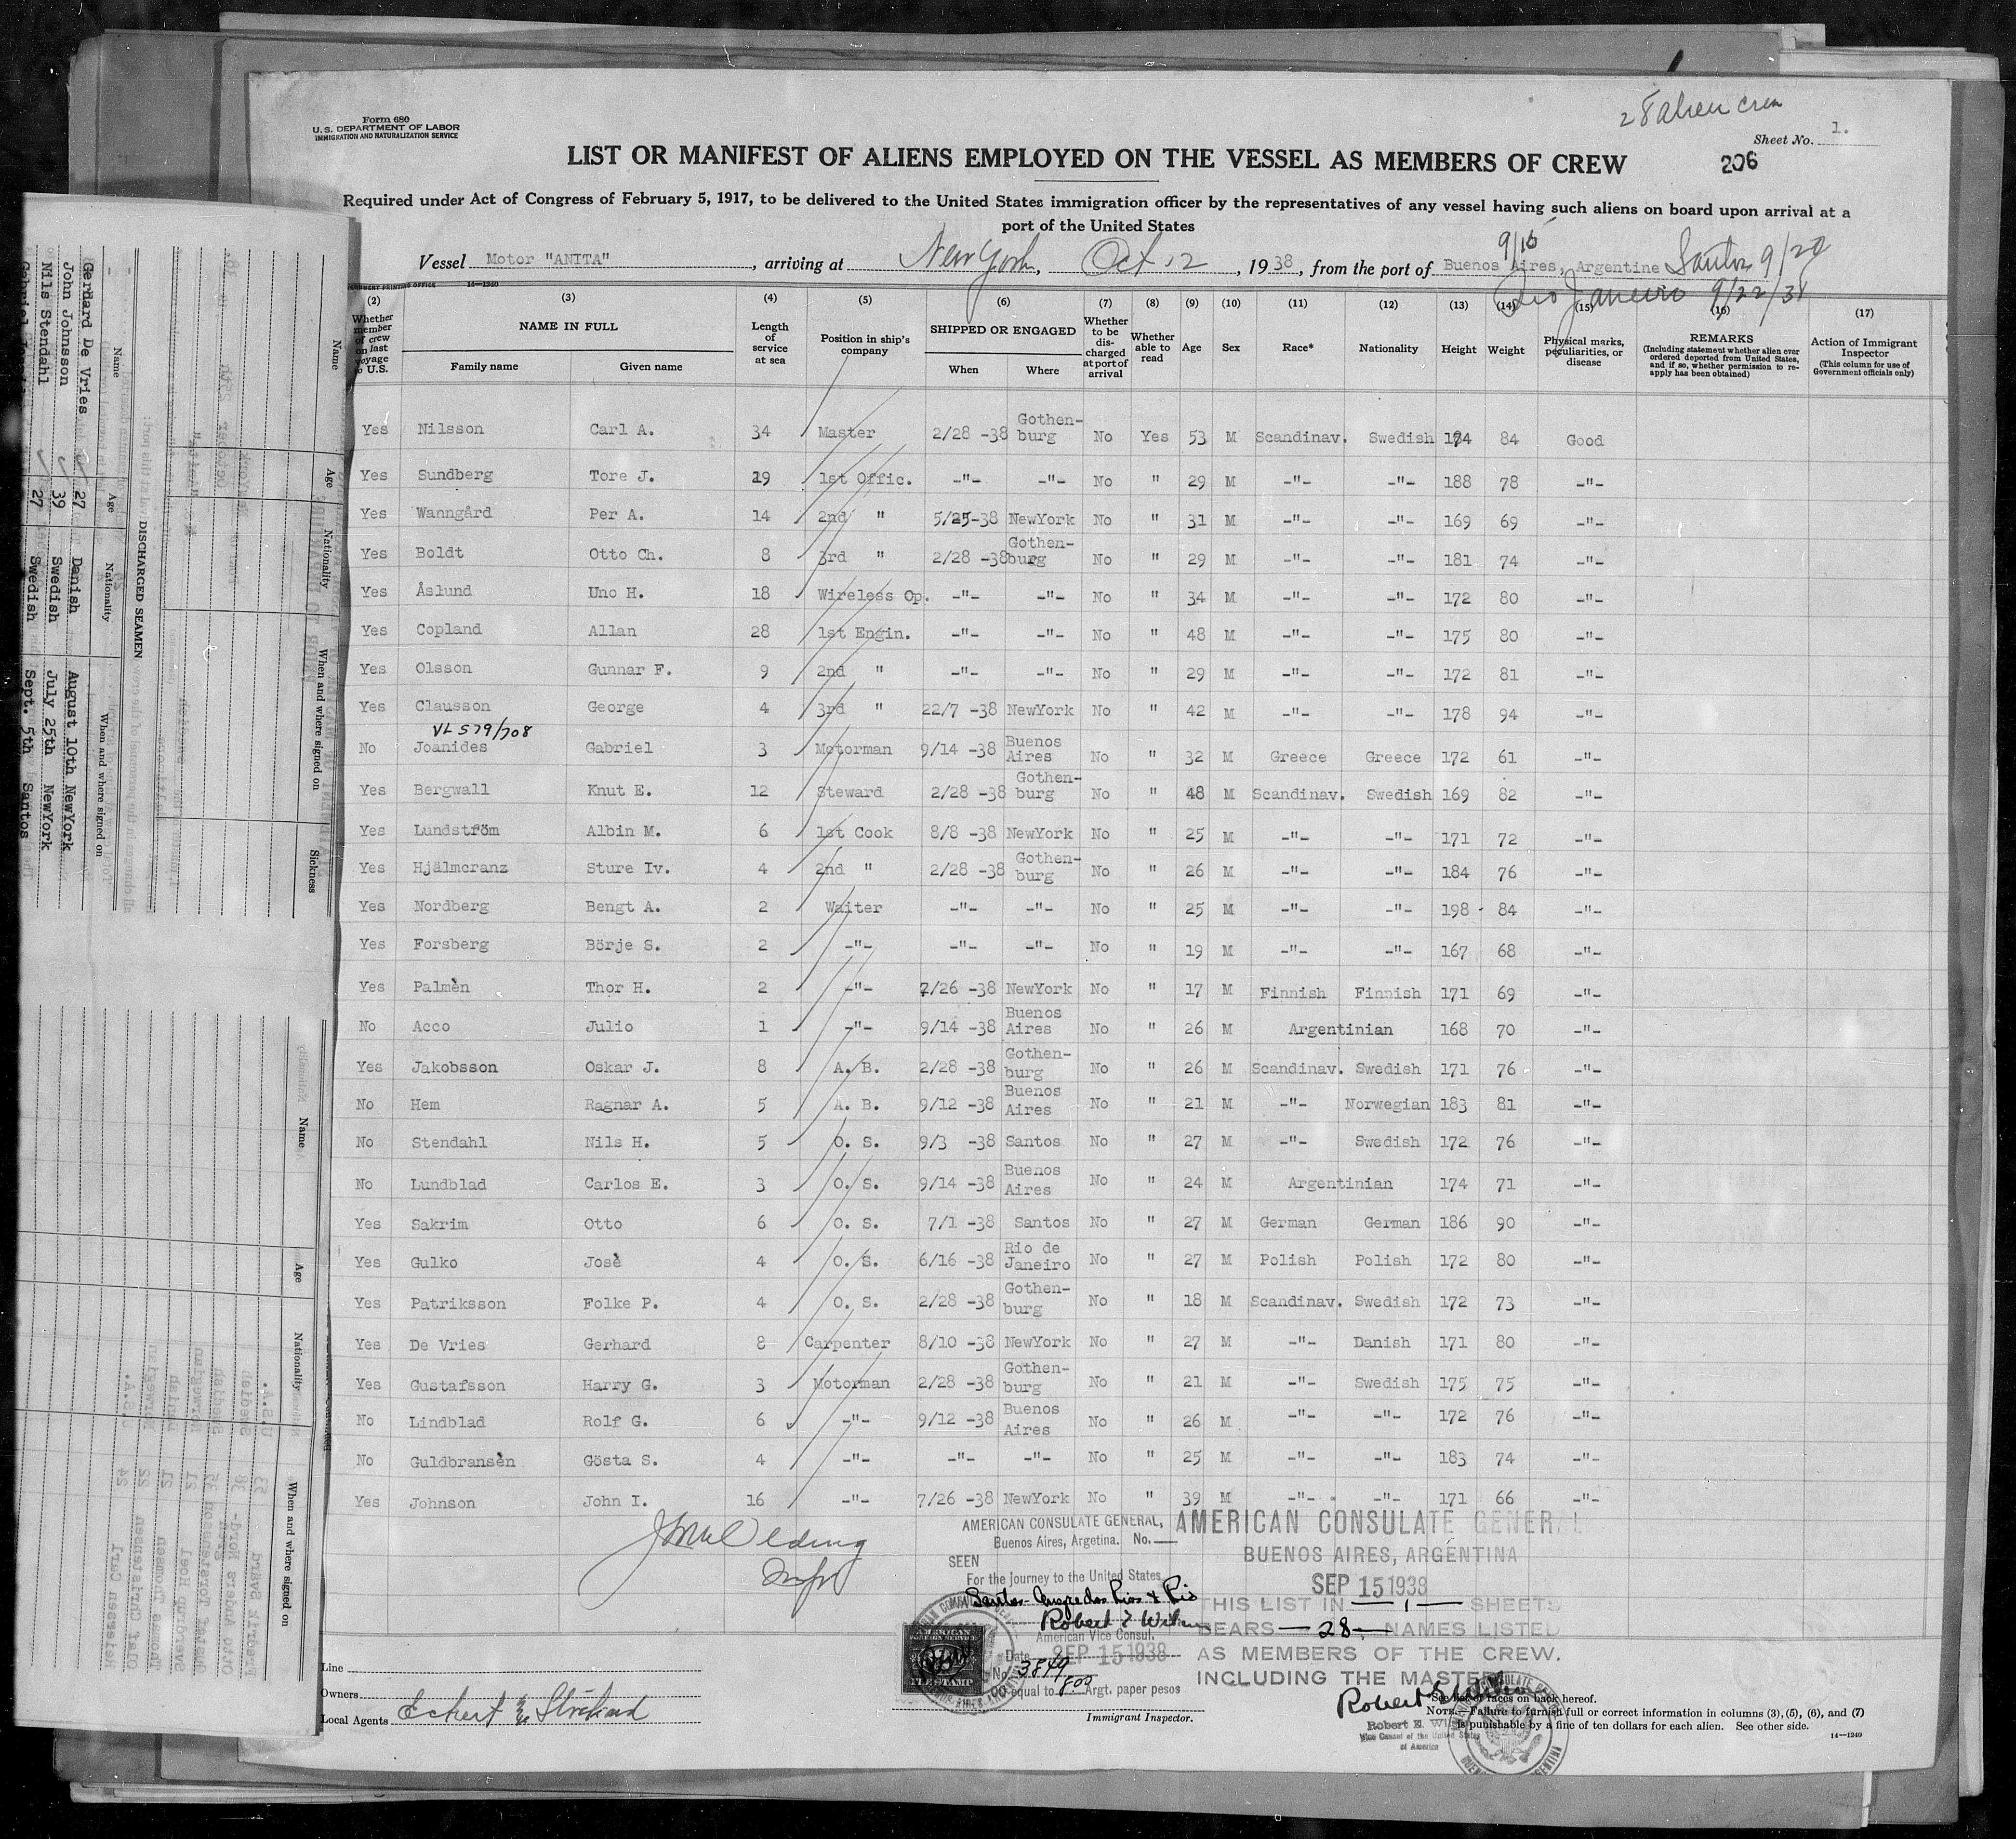 28 alien crew
Form 680
U. S. DEPARTMENT OF LABOR
IMMIGRATION AND NATURALIZATION SERVICE
Sheet No. 1.
LIST OR MANIFEST OF ALIENS EMPLOYED ON THE VESSEL AS MEMBERS OF CREW
206
Required under Act of Congress of February 5, 1917, to be delivered to the United States immigration officer by the representatives of any vessel having such aliens on board upon arrival at a
port of the United States
9/16
Vessel Motor "ANITA", arriving at New York, Oct 12, 1938, from the port of Buenos Aires, Argentine Santos 9/20
Rio Janeiro 9/22/38
14—1240
(2) (3) (4) (5) (6) (7) (8) (9) (10) (11) (12) (13) (14) (15) (16) (17)
Whether member of crew on last voyage to U.S.
NAME IN FULL
Family name Given name
Length of service at sea
Position in ship's company
SHIPPED OR ENGAGED
When Where
Whether to be discharged at port of arrival
Whether able to read
Age Sex Race* Nationality Height Weight
Physical marks, peculiarities, or disease
REMARKS
(Including statement whether alien ever ordered deported from United States, and if so, whether permission to reapply has been obtained)
Action of Immigrant Inspector
(This column for use of Government officials only)
Yes Nilsson Carl A. 34 Master 2/28 -38 Gothenburg No Yes 53 M Scandinav. Swedish 174 84 Good
Yes Sundberg Tore J. 19 1st Offic. -"- -"- No " 29 M -"- -"- 188 78 -"-
Yes Wanngård Per A. 14 2nd " 5/25-38 NewYork No " 31 M -"- -"- 169 69 -"-
Yes Boldt Otto Ch. 8 3rd " 2/28 -38 Gothenburg No " 29 M -"- -"- 181 74 -"-
Yes Åslund Uno H. 18 Wireless Op. -"- -"- No " 34 M -"- -"- 172 80 -"-
Yes Copland Allan 28 1st Engin. -"- -"- No " 48 M -"- -"- 175 80 -"-
Yes Olsson Gunnar F. 9 2nd " -"- -"- No " 29 M -"- -"- 172 81 -"-
Yes Clausson George 4 3rd " 22/7 -38 NewYork No " 42 M -"- -"- 178 94 -"-
VL 579/708
No Joanides Gabriel 3 Motorman 9/14 -38 Buenos Aires No " 32 M Greece Greece 172 61 -"-
Yes Bergwall Knut E. 12 Steward 2/28 -38 Gothenburg No " 48 M Scandinav. Swedish 169 82 -"-
Yes Lundström Albin M. 6 1st Cook 8/8 -38 NewYork No " 25 M -"- -"- 171 72 -"-
Yes Hjälmcranz Sture Iv. 4 2nd " 2/28 -38 Gothenburg No " 26 M -"- -"- 184 76 -"-
Yes Nordberg Bengt A. 2 Waiter -"- -"- No " 25 M -"- -"- 198 84 -"-
Yes Forsberg Börje S. 2 -"- -"- -"- No " 19 M -"- -"- 167 68 -"-
Yes Palmèn Thor H. 2 -"- 7/26 -38 NewYork No " 17 M Finnish Finnish 171 69 -"-
No Acco Julio 1 -"- 9/14 -38 Buenos Aires No " 26 M Argentinian 168 70 -"-
Yes Jakobsson Oskar J. 8 A. B. 2/28 -38 Gothenburg No " 26 M Scandinav. Swedish 171 76 -"-
No Hem Ragnar A. 5 A. B. 9/12 -38 Buenos Aires No " 21 M -"- Norwegian 183 81 -"-
No Stendahl Nils H. 5 O. S. 9/3 -38 Santos No " 27 M -"- Swedish 172 76 -"-
No Lundblad Carlos E. 3 O. S. 9/14 -38 Buenos Aires No " 24 M Argentinian 174 71 -"-
Yes Sakrim Otto 6 O. S. 7/1 -38 Santos No " 27 M German German 186 90 -"-
Yes Gulko Josè 4 O. S. 6/16 -38 Rio de Janeiro No " 27 M Polish Polish 172 80 -"-
Yes Patriksson Folke P. 4 O. S. 2/28 -38 Gothenburg No " 18 M Scandinav. Swedish 172 73 -"-
Yes De Vries Gerhard 8 Carpenter 8/10 -38 NewYork No " 27 M -"- Danish 171 80 -"-
Yes Gustafsson Harry G. 3 Motorman 2/28 -38 Gothenburg No " 21 M -"- Swedish 175 75 -"-
No Lindblad Rolf G. 6 -"- 9/12 -38 Buenos Aires No " 26 M -"- -"- 172 76 -"-
No Guldbransèn Gösta S. 4 -"- -"- -"- No " 25 M -"- -"- 183 74 -"-
Yes Johnson John I. 16 -"- 7/26 -38 NewYork No " 39 M -"- -"- 171 66 -"-
AMERICAN CONSULATE GENERAL,
Buenos Aires, Argetina. No.
SEEN
For the journey to the United States
American Vice Consul.
Date SEP 15 1938
No. 3849
equal to 8.00 Argt. paper pesos
AMERICAN FOREIGN SERVICE
FEE STAMP
AMERICAN CONSULATE GENERAL
BUENOS AIRES, ARGENTINA
SEP 15 1938
THIS LIST IN 1 SHEETS
BEARS 28 NAMES LISTED
AS MEMBERS OF THE CREW.
INCLUDING THE MASTER.
Vice Consul of the United States
of America
Line
Owners
Local Agents
Immigrant Inspector.
*See list of races on back hereof.
NOTE.—Failure to furnish full or correct information in columns (3), (5), (6), and (7)
is punishable by a fine of ten dollars for each alien. See other side.
14—1240
DISCHARGED SEAMEN
Name Age Nationality When and where signed on
Gerhard De Vries 27 Danish August 10th NewYork
John Johnsson 39 Swedish July 25th NewYork
Nils Stendahl 27 Swedish Sept. 5th Santos
Name Age Nationality When and where signed on Sickness
Name Age Nationality When and where signed on